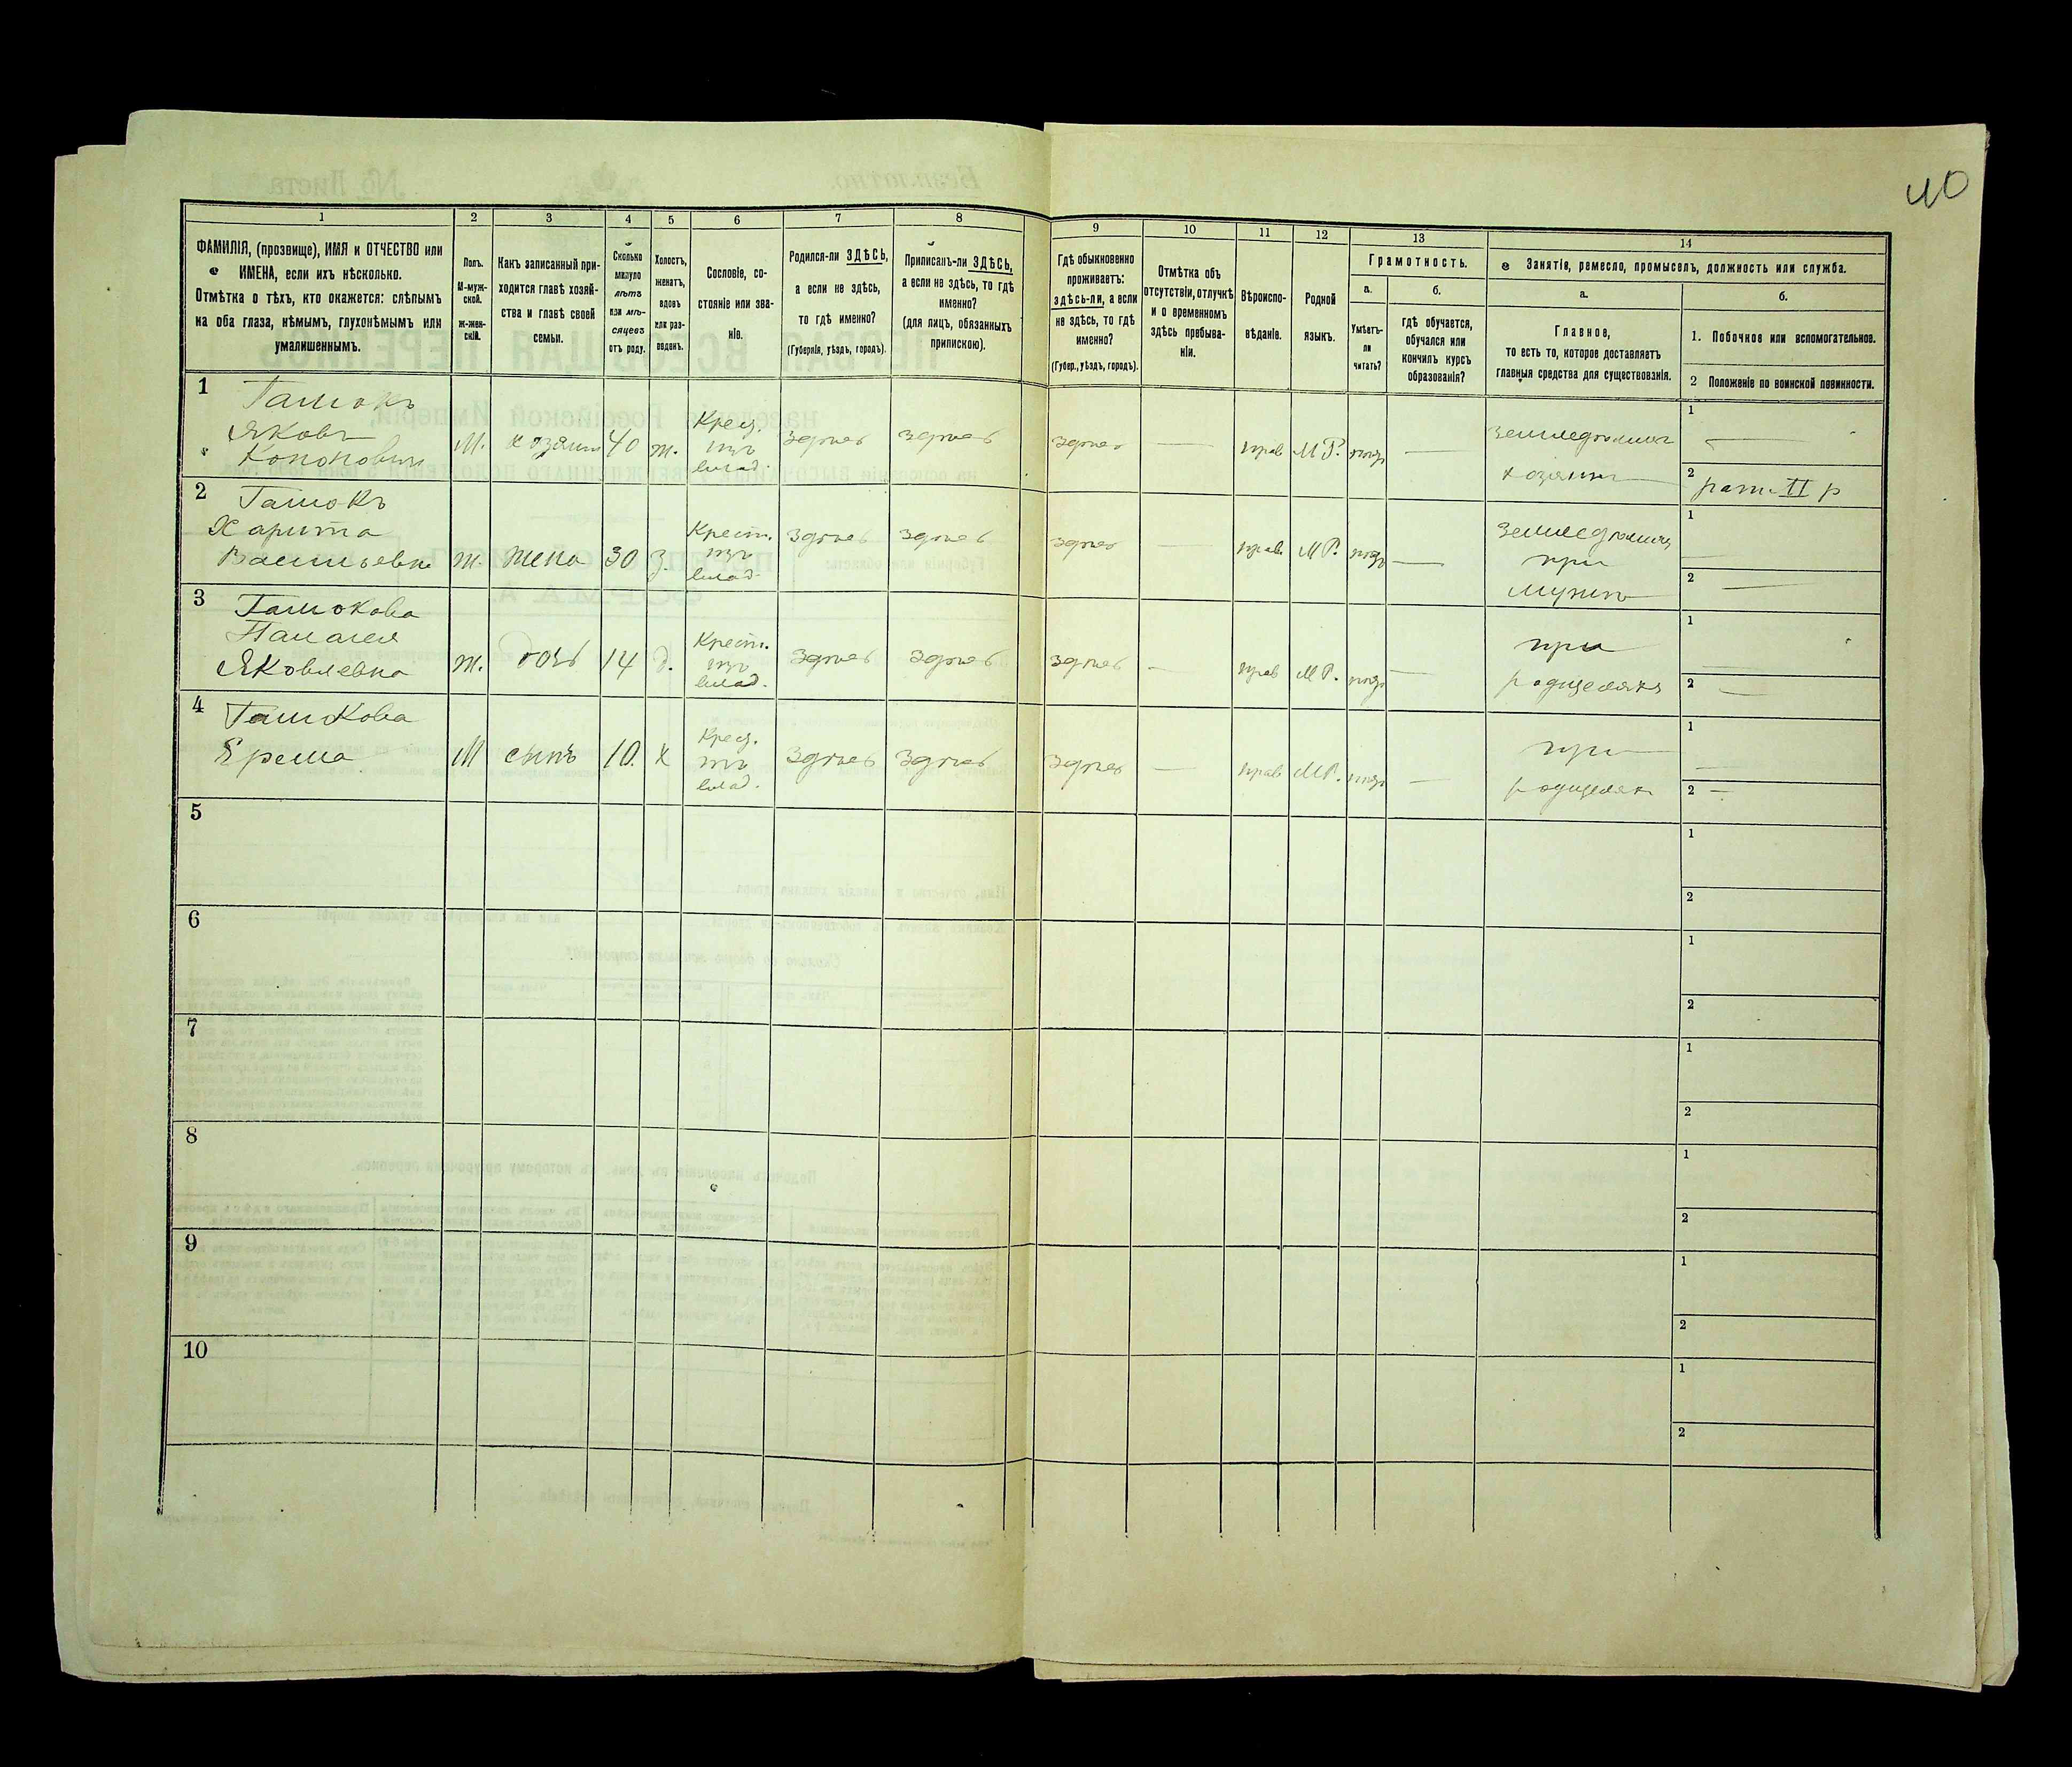 40
1
2
3
4
5
6
7
8
9
10
11
12
13
14
ФАМИЛІЯ, (прозвище), ИМЯ и ОТЧЕСТВО или
ИМЕНА, если ихъ нѣсколько.
Отмѣтка о тѣхъ, кто окажется: слѣпымъ
на оба глаза, нѣмымъ, глухонѣмымъ или
умалишеннымъ.
Полъ.
М-муж-
ской.
Ж-жен-
скій.
Какъ записанный при-
ходится главѣ хозяй-
ства и главѣ своей
семьи.
Сколько
минуло
лѣтъ
или мѣ-
сяцевъ
отъ роду.
Холостъ,
женатъ,
вдовъ
или раз-
веденъ.
Сословіе, со-
стояніе или зва-
ніе.
Родился-ли ЗДѢСЬ,
а если не здѣсь,
то гдѣ именно?
(Губернія, уѣздъ, городъ).
Приписанъ-ли ЗДѢСЬ,
а если не здѣсь, то гдѣ
именно?
(для лицъ, обязанныхъ
припискою).
Гдѣ обыкновенно
проживаетъ:
здѣсь-ли, а если
не здѣсь, то гдѣ
именно?
(Губер., уѣздъ, городъ).
Отмѣтка объ
отсутствіи, отлучкѣ
и о временномъ
здѣсь пребыва-
ніи.
Вѣроиспо-
вѣданіе.
Родной
языкъ.
Грамотность.
а.
Умѣетъ-
ли
читать?
б.
гдѣ обучается,
обучался или
кончилъ курсъ
образованія?
Занятіе, ремесло, промыселъ, должность или служба.
а.
Главное,
то есть то, которое доставляетъ
главныя средства для существованія.
б.
1. Побочное или вспомогательное.
2 Положеніе по воинской повинности.
1
Яковъ
Кононовичъ
М. хозяинъ 40 ж. Крест. изъ влад. здѣсь здѣсь здѣсь — прав М Р. —
хозяинъ
1 —
2 рат. II р
2
Харита
Васильевна
Ж. жена 30 з. Крест. изъ влад. здѣсь здѣсь здѣсь — прав. М Р. —
при
мужѣ
1 —
2 —
3
Яковлевна
Ж. дочь 14 д. Крест. изъ влад. здѣсь здѣсь здѣсь — прав М Р. —
при
родителяхъ
1 —
2 —
4
Ярема
М сынъ 10. х Крест. изъ влад. здѣсь здѣсь здѣсь — прав М Р. —
при
родителях
1 —
2 —
5
1
2
6
1
2
7
1
2
8
1
2
9
1
2
10
1
2